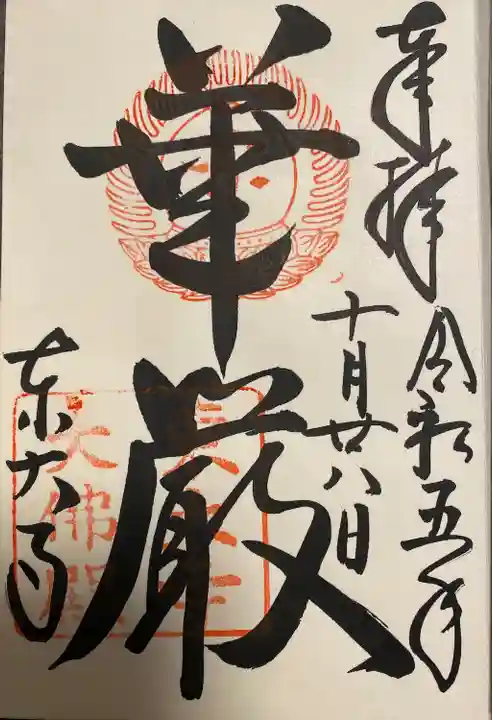 奉拝
令和五年
十月廿八日
華厳
東大寺
東大寺
大佛殿